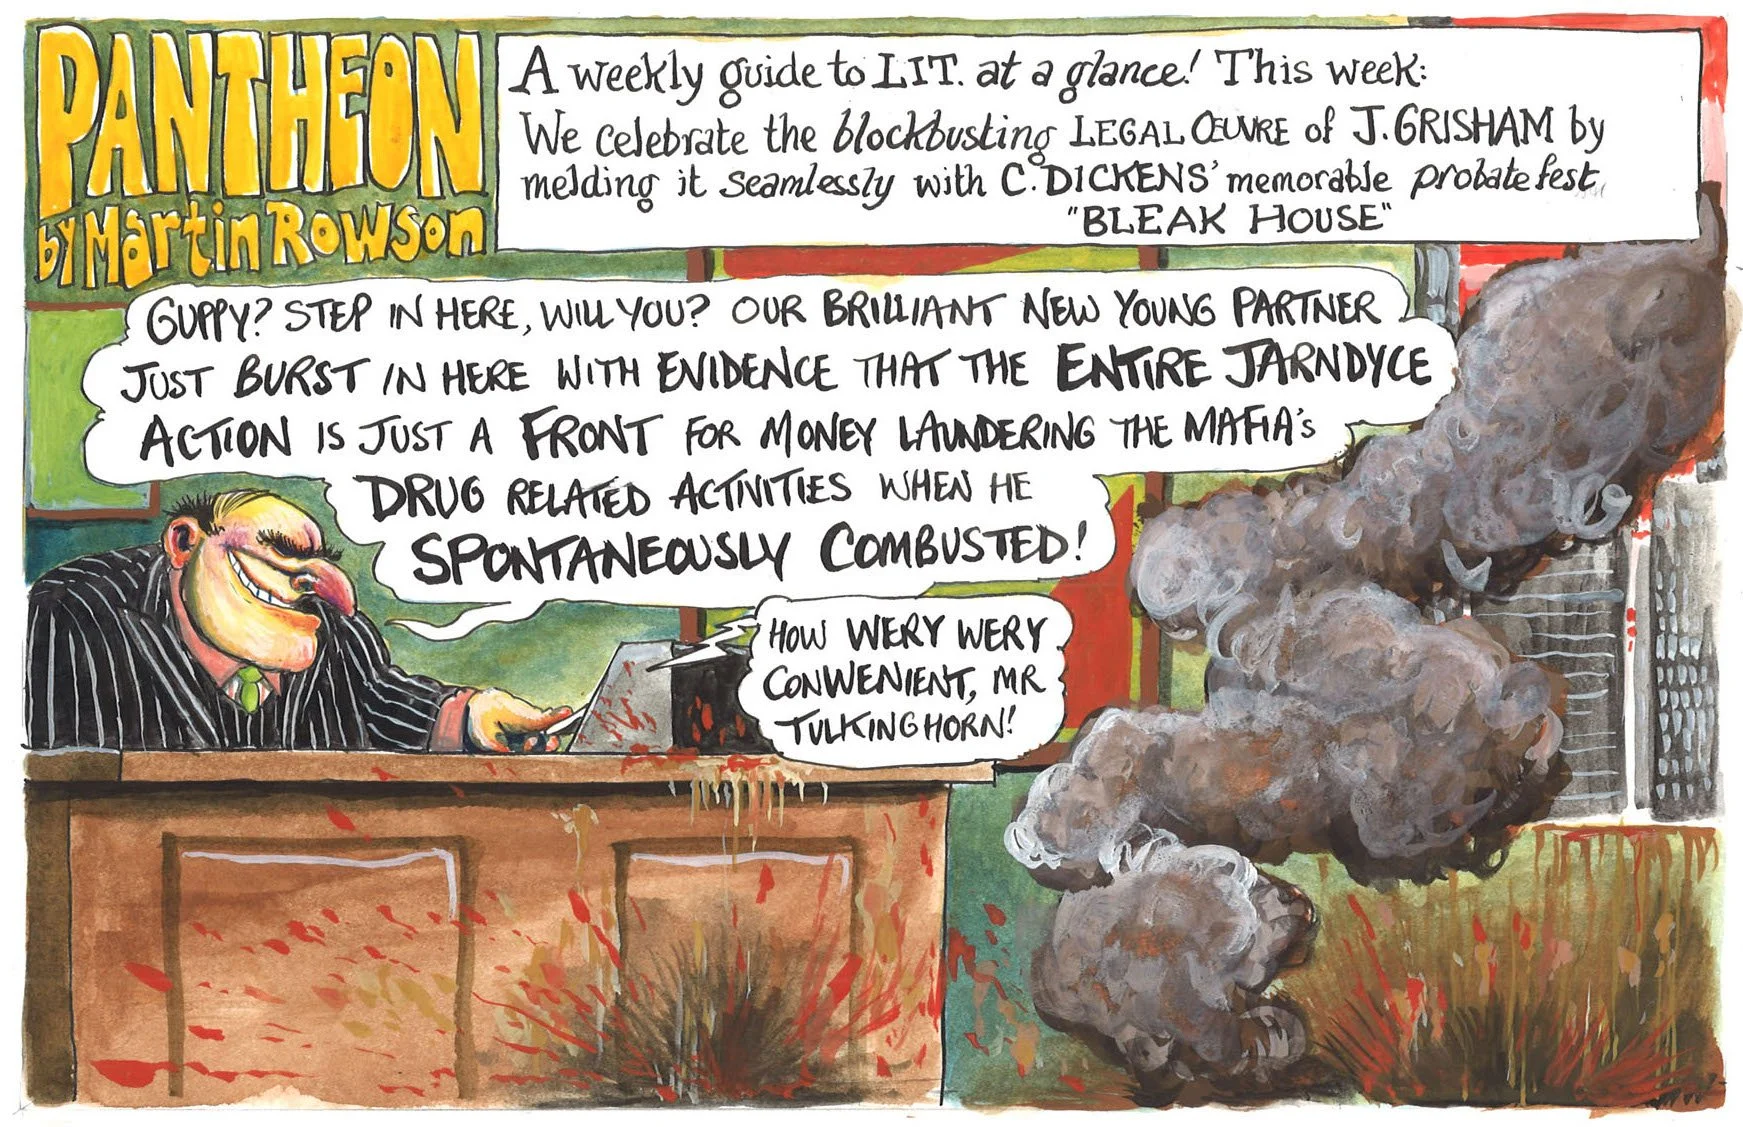 PANTHEON
by Martin Rowson
A weekly guide to LIT. at a glance! This week:
We celebrate the blockbusting LEGAL ŒUVRE of J. GRISHAM by
melding it seamlessly with C. DICKENS' memorable probate fest
"BLEAK HOUSE"
GUPPY? STEP IN HERE, WILL YOU? OUR BRILLIANT NEW YOUNG PARTNER
JUST BURST IN HERE WITH EVIDENCE THAT THE ENTIRE JARNDYCE
ACTION IS JUST A FRONT FOR MONEY LAUNDERING THE MAFIA'S
DRUG RELATED ACTIVITIES WHEN HE
SPONTANEOUSLY COMBUSTED!
HOW WERY WERY
CONWENIENT, MR
TULKINGHORN!